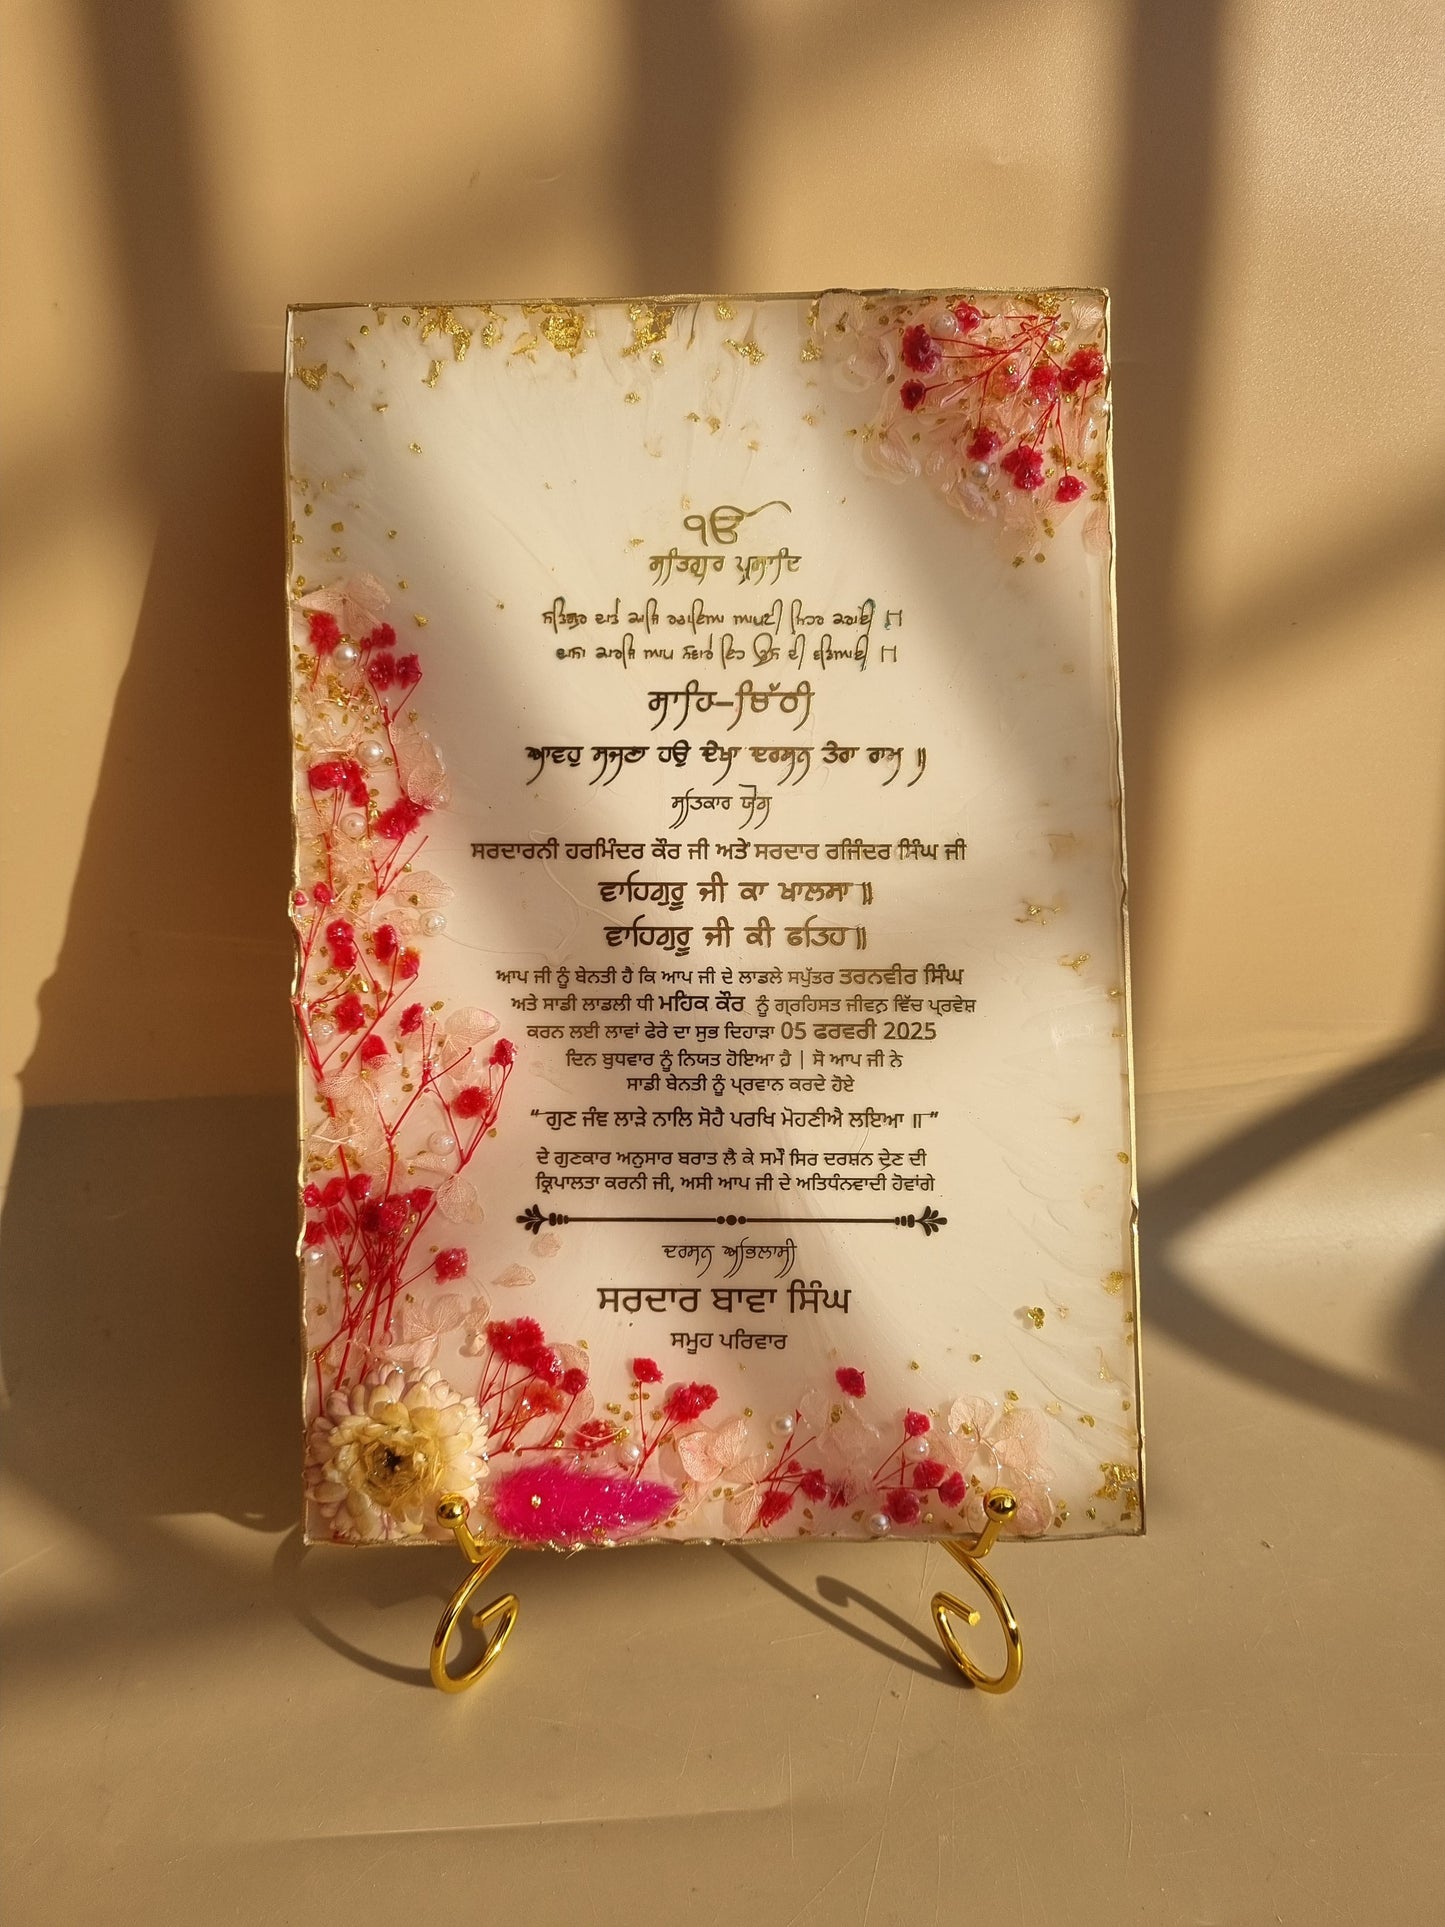 ੴ
ਸਤਿਗੁਰ ਪ੍ਰਸਾਦਿ
ਸਤਿਗੁਰ ਦਾਤੇ ਕਾਜਿ ਰਚਾਇਆ ਆਪਣੀ ਮਿਹਰ ਕਰਾਈ ॥
ਦਾਸਾ ਕਾਰਜਿ ਆਪ ਸਵਾਰੇ ਇਹ ਉਸ ਦੀ ਵਡਿਆਈ ॥
ਸਾਹਿ-ਚਿੱਠੀ
ਆਵਹੁ ਸਜਣਾ ਹਉ ਦੇਖਾ ਦਰਸਨ ਤੇਰਾ ਰਾਮ ॥
ਸਤਿਕਾਰ ਯੋਗ
ਸਰਦਾਰਨੀ ਹਰਮਿੰਦਰ ਕੌਰ ਜੀ ਅਤੇ ਸਰਦਾਰ ਰਜਿੰਦਰ ਸਿੰਘ ਜੀ
ਵਾਹਿਗੁਰੂ ਜੀ ਕਾ ਖਾਲਸਾ ॥
ਵਾਹਿਗੁਰੂ ਜੀ ਕੀ ਫਤਿਹ ॥
ਆਪ ਜੀ ਨੂੰ ਬੇਨਤੀ ਹੈ ਕਿ ਆਪ ਜੀ ਦੇ ਲਾਡਲੇ ਸਪੁੱਤਰ ਤਰਨਵੀਰ ਸਿੰਘ
ਅਤੇ ਸਾਡੀ ਲਾਡਲੀ ਧੀ ਮਹਿਕ ਕੌਰ ਨੂੰ ਗ੍ਰਹਿਸਤ ਜੀਵਨ ਵਿੱਚ ਪ੍ਰਵੇਸ਼
ਕਰਨ ਲਈ ਲਾਵਾਂ ਫੇਰੇ ਦਾ ਸੁਭ ਦਿਹਾੜਾ 05 ਫਰਵਰੀ 2025
ਦਿਨ ਬੁਧਵਾਰ ਨੂੰ ਨਿਯਤ ਹੋਇਆ ਹੈ | ਸੋ ਆਪ ਜੀ ਨੇ
ਸਾਡੀ ਬੇਨਤੀ ਨੂੰ ਪ੍ਰਵਾਨ ਕਰਦੇ ਹੋਏ
“ ਗੁਣ ਜੰਞ ਲਾੜੇ ਨਾਲਿ ਸੋਹੈ ਪਰਖਿ ਮੋਹਣੀਐ ਲਇਆ ॥ ”
ਦੇ ਗੁਣਕਾਰ ਅਨੁਸਾਰ ਬਰਾਤ ਲੈ ਕੇ ਸਮੇਂ ਸਿਰ ਦਰਸ਼ਨ ਦੇਣ ਦੀ
ਕ੍ਰਿਪਾਲਤਾ ਕਰਨੀ ਜੀ, ਅਸੀ ਆਪ ਜੀ ਦੇ ਅਤਿਧੰਨਵਾਦੀ ਹੋਵਾਂਗੇ
ਦਰਸਨ ਅਭਿਲਾਸੀ
ਸਰਦਾਰ ਬਾਵਾ ਸਿੰਘ
ਸਮੂਹ ਪਰਿਵਾਰ